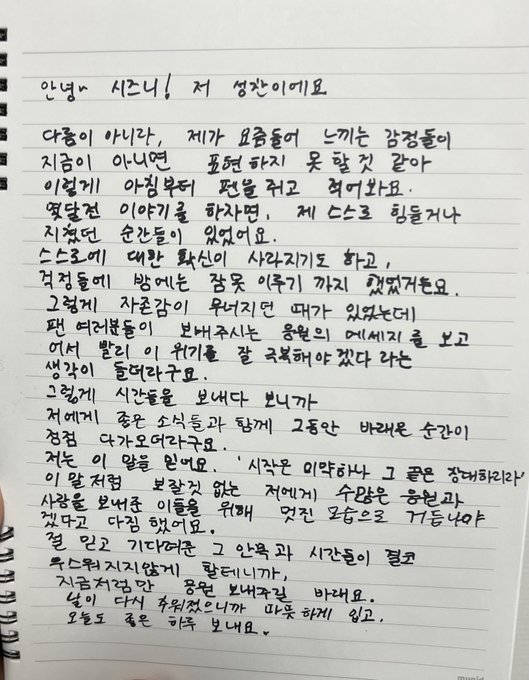 안녕~ 시즈니! 저 성찬이에요
다름이 아니라, 제가 요즘들어 느끼는 감정들이
지금이 아니면 표현하지 못 할것 같아
이렇게 아침부터 펜을 쥐고 적어봐요.
몇달전 이야기를 하자면, 제 스스로 힘들거나
지쳤던 순간들이 있었어요.
스스로에 대한 확신이 사라지기도 하고,
걱정들에 밤에는 잠못 이루기 까지 했었거든요.
그렇게 자존감이 무너지던 때가 있었는데
팬 여러분들이 보내주시는 응원의 메세지를 보고
어서 빨리 이 위기를 잘 극복해야겠다 라는
생각이 들더라구요.
그렇게 시간들을 보내다 보니까
저에게 좋은 소식들과 함께 그동안 바래온 순간이
점점 다가오더라구요.
저는 이 말을 믿어요. '시작은 미약하나 그 끝은 창대하리라'
이 말처럼 보잘것 없는 저에게 수많은 응원과
사랑을 보내준 이들을 위해 멋진 모습으로 거듭나야
겠다고 다짐했어요.
절 믿고 기다려준 그 안목과 시간들이 결코
우스워지지않게 할테니까,
지금처럼만 응원 보내주길 바래요.
날이 다시 추워졌으니까 따뜻하게 입고,
오늘도 좋은 하루 보내요.